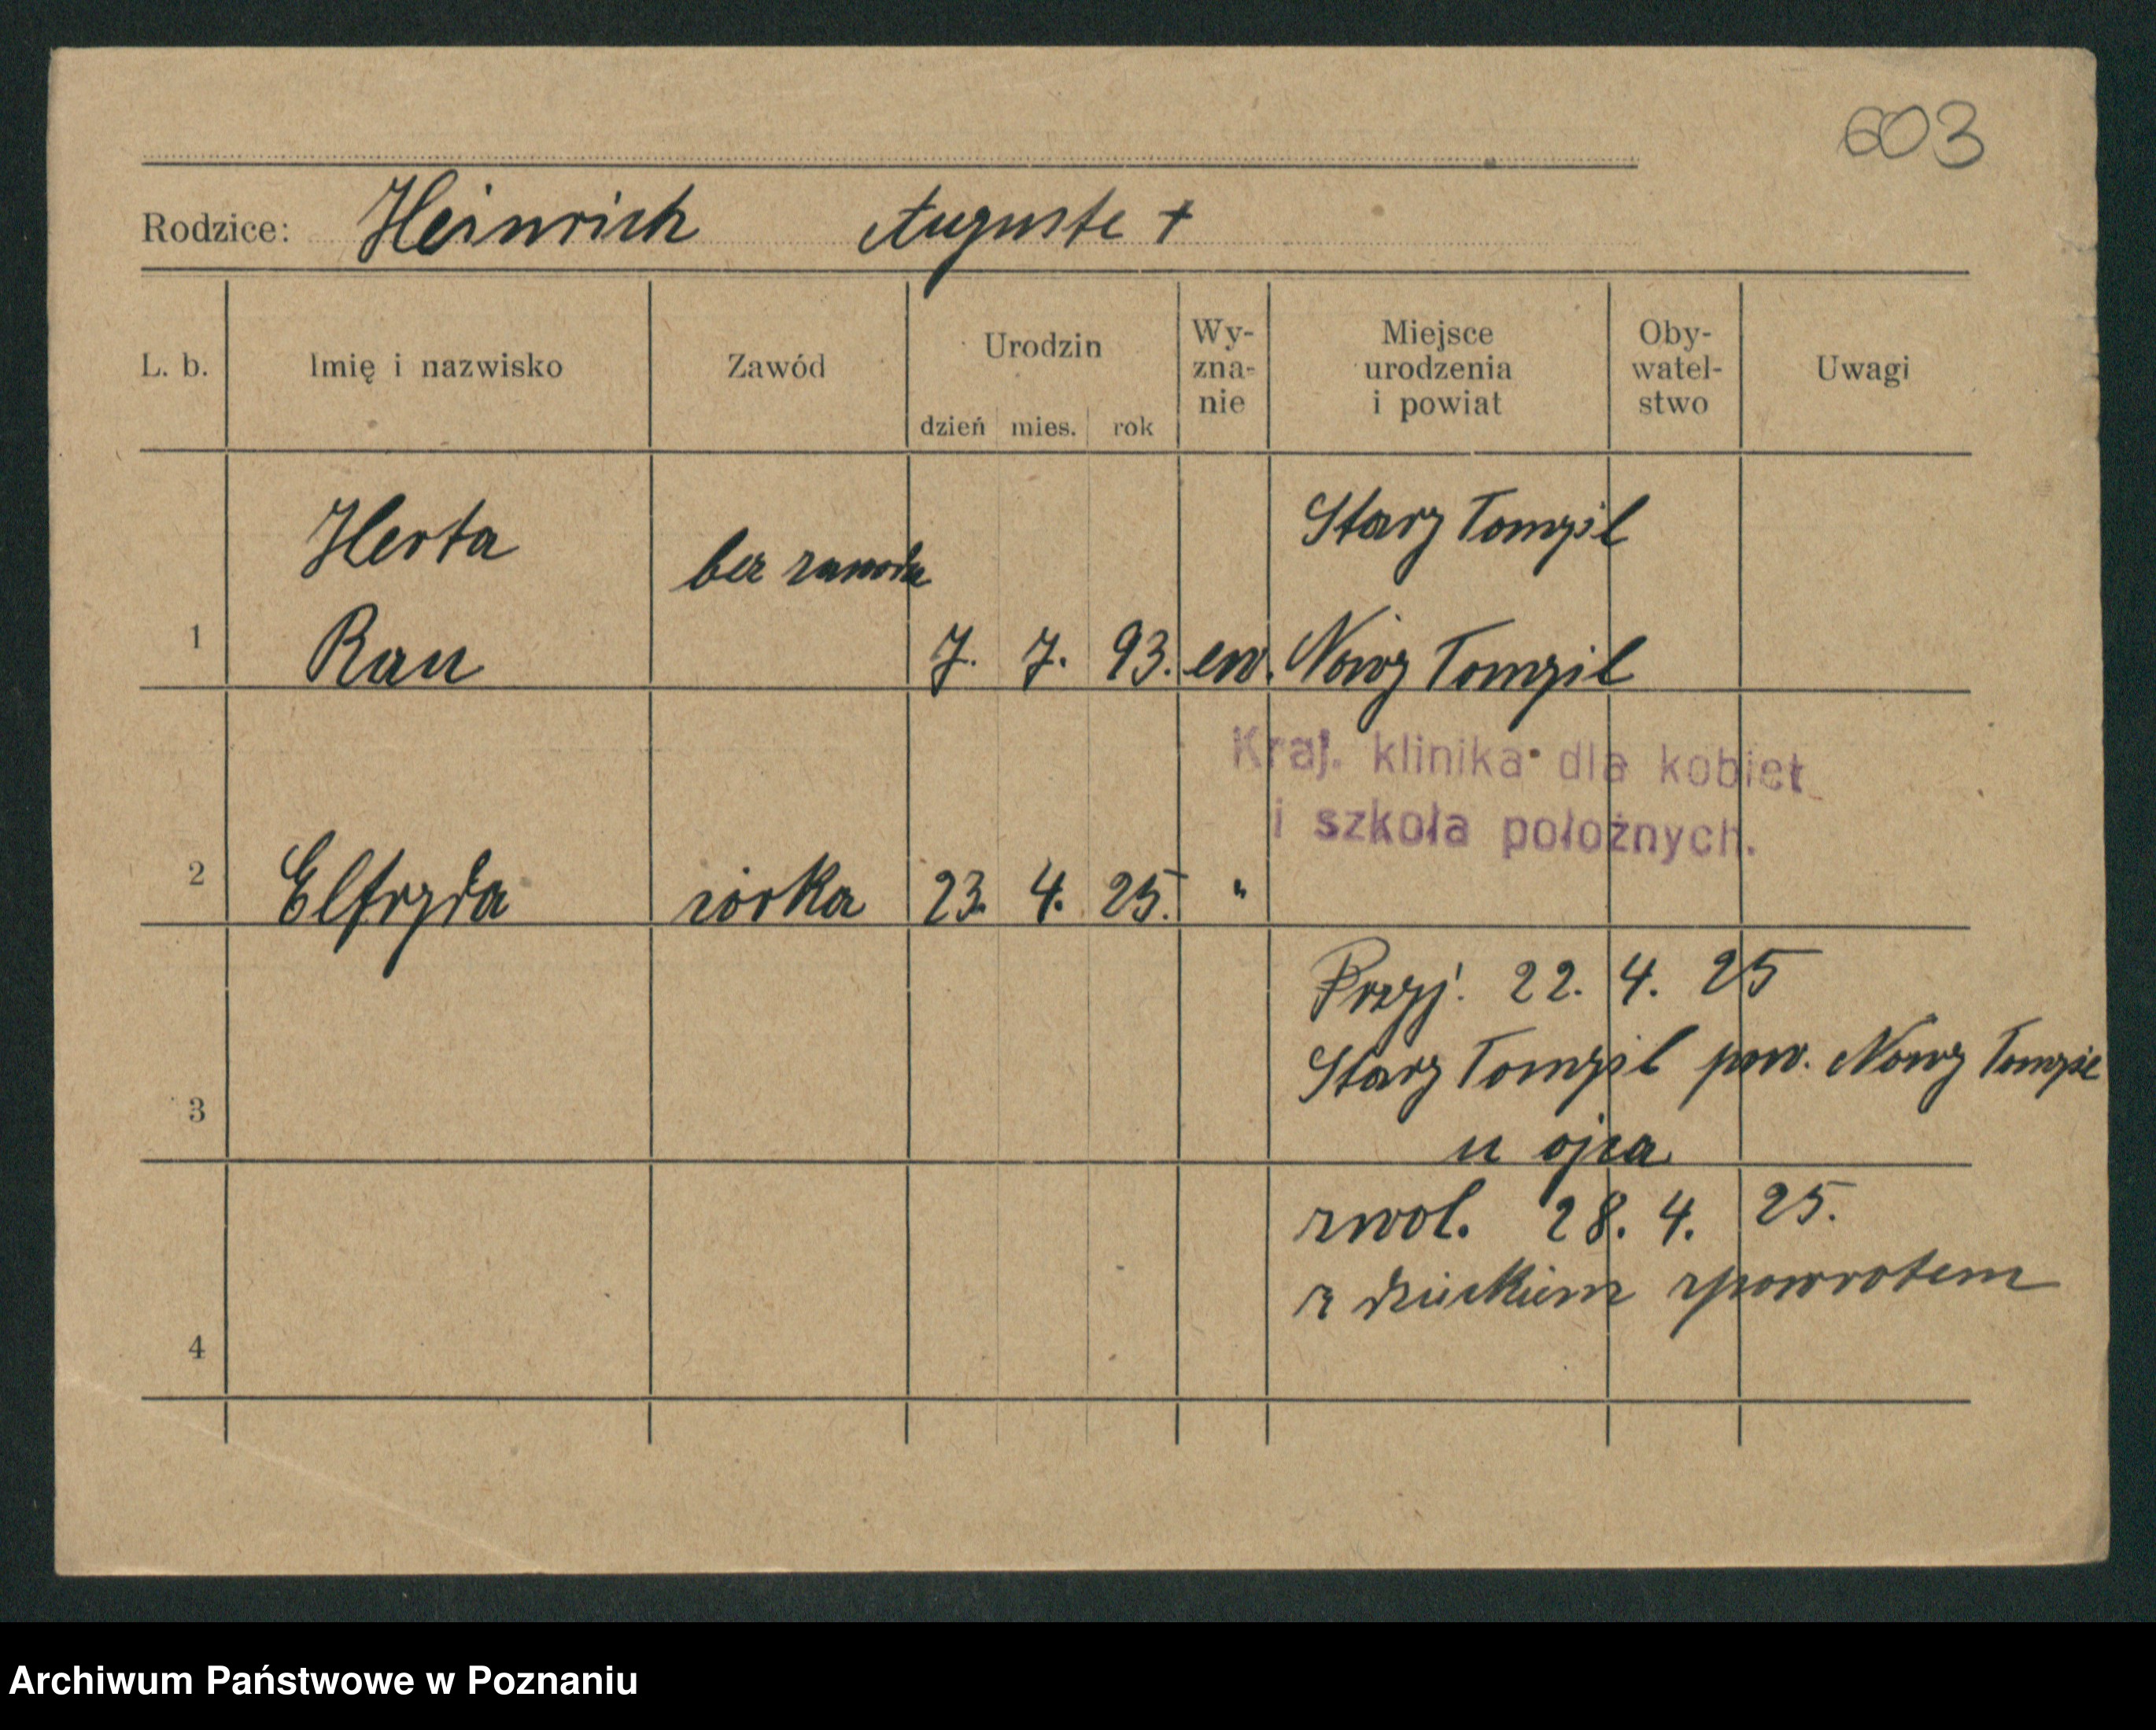 603
Rodzice: Heinrich Auguste +
L. b. Imię i nazwisko Zawód Urodzin dzień mies. rok Wy-zna-nie Miejsce urodzenia i powiat Oby-watel-stwo Uwagi
Herta bez zawodu Stary Tomyśl
1 Rau 7. 7. 93. ew. Nowy Tomyśl
Kraj. klinika dla kobiet
i szkoła położnych.
2 Elfryda córka 23. 4. 25. "
Przyj. 22. 4. 25
Stary Tomyśl pow. Nowy Tomyśl
3
u ojca
zwol. 28. 4. 25.
z dzieckiem zpowrotem
4
Archiwum Państwowe w Poznaniu